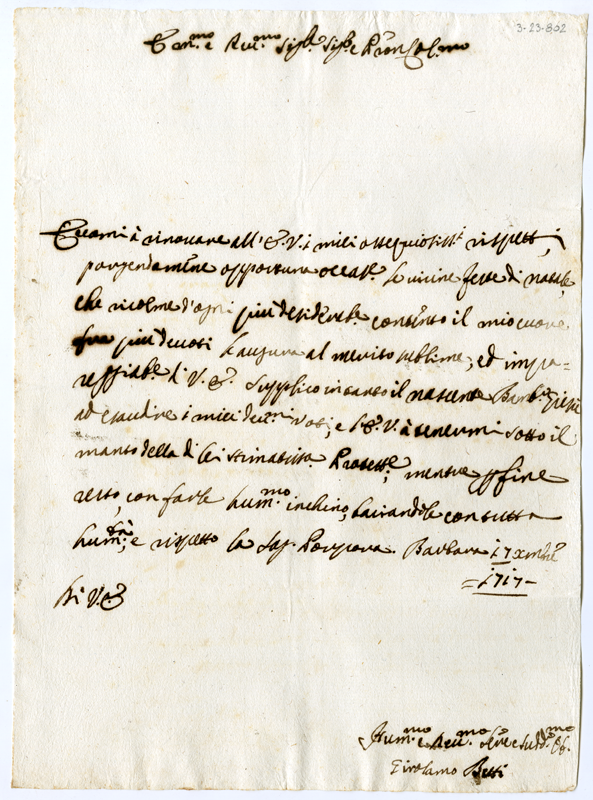 3-23-802
Em.mo e Rev.mo Sig.r Sig.r e Pron Col.mo
Eccomi à rinovare all'E. V. i miei ossequiosiss.i rispetti,
porgendomene opportuna occas.e le vicine feste di natale,
che ricolme d'ogni più desiderab.e contento il mio cuore
fra più devoti l'augura al merito sublime, ed impa=
reggiab.e di V. E. Supplico intanto il nascente Bamb.o Giesù
ad esaudire i miei dev.mi voti, e l'E. V. à tenermi sotto il
manto della di lei stimatiss.a Protett.e, mentre p fine
resto, con farle hum.mo inchino, baciandole con tutta
hum.tà, e rispetto la Sag. Porpora. Barbara 17 xmbre
=1717=
Di V. E.
Hum.mo e Dev.mo Ser.e
Girolamo Betti